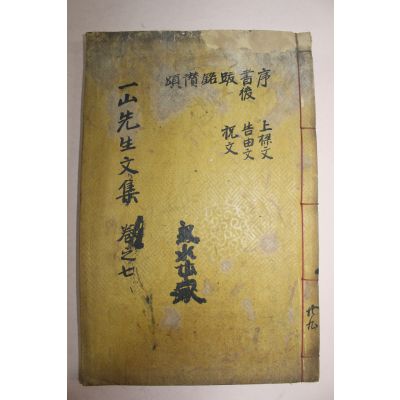 序 書後 跋 銘 讃 頌
上樑文 告由文 祝文
一山先生文集 卷之七